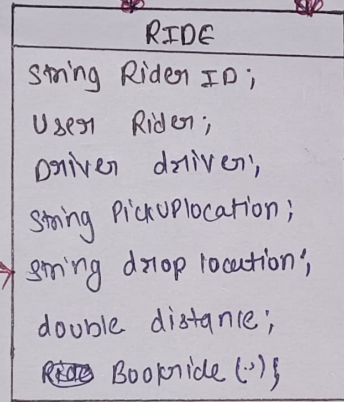 RIDE
String Rider ID;
User Rider;
Driver driver;
String PickUPlocation;
String drop location;
double distance;
Bookride (..);